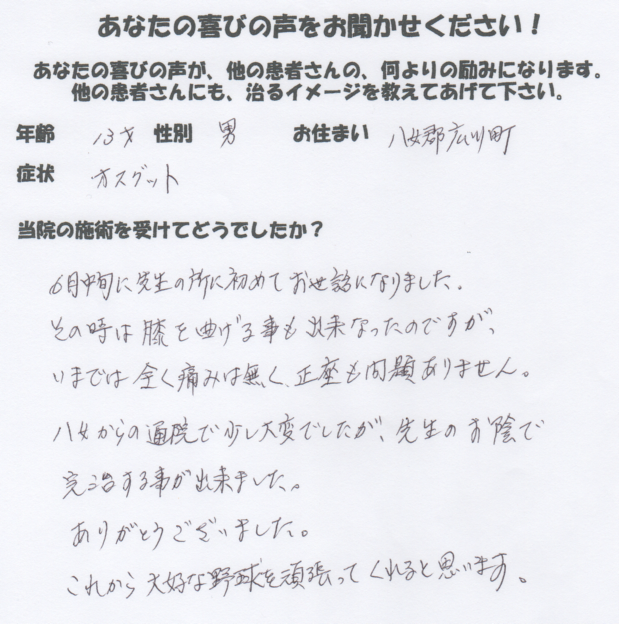 あなたの喜びの声をお聞かせください！
あなたの喜びの声が、他の患者さんの、何よりの励みになります。
他の患者さんにも、治るイメージを教えてあげて下さい。
年齢 13才 性別 男 お住まい 八女郡広川町
症状 オスグット
当院の施術を受けてどうでしたか？
6月中旬に先生の所に初めてお世話になりました。
その時は膝を曲げる事も出来なったのですが、
いまでは全く痛みは無く、正座も問題ありません。
八女からの通院で少し大変でしたが、先生のお陰で
完治する事が出来ました。
ありがとうございました。
これから大好な野球を頑張ってくれると思います。